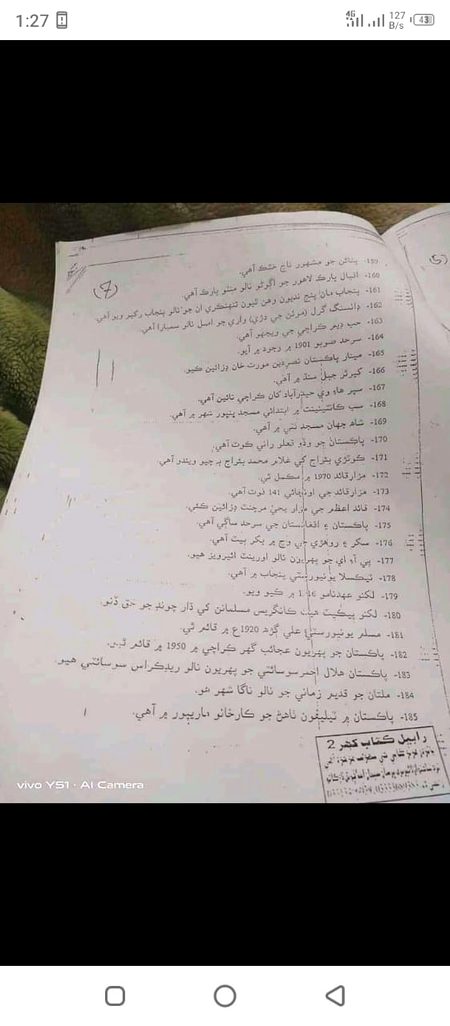 1:27
4G
127 B/s
43
(7)
(5)
159- پٺاڻن جو مشهور ناچ خٽڪ آهي.
160- اقبال پارڪ لاهور جو اڳوڻو نالو منٽو پارڪ آهي.
161- پنجاب مان پنج نديون وهن ٿيون تنهنڪري ان جو نالو پنجاب رکيو ويو آهي.
162- ڊانسنگ گرل (موئن جي دڙي) واري جو اصل نالو سمبارا آهي.
163- حب ڊيم ڪراچي جي ويجهو آهي.
164- سرحد صوبو 1901 ۾ وجود ۾ آيو.
165- مينار پاڪستان نصرالدين مورت خان ڊزائين ڪيو.
166- کيرٿر جبل سنڌ ۾ آهي.
167- سپر هاءِ وي حيدرآباد کان ڪراچي تائين آهي.
168- سب کانٽينينٽ ۾ ابتدائي مسجد ڀنڀور شهر ۾ آهي.
169- شاهه جهان مسجد ٺٽي ۾ آهي.
170- پاڪستان جو وڏو قعلو راني ڪوٽ آهي.
171- ڪوٽڙي بئراج کي غلام محمد بئراج به چيو ويندو آهي.
172- مزار قائد 1970 ۾ مڪمل ٿي.
173- مزار قائد جي اوچائي 141 فوٽ آهي.
174- قائد اعظم جي مزار يحيٰ مرچنٽ ڊزائين ڪئي.
175- پاڪستان ۽ افغانستان جي سرحد ساڳي آهي.
176- سکر ۽ روهڙي جي وچ ۾ بکر ٻيٽ آهي.
177- پي آءِ اي جو پهريون نالو اورينٽ ائيرويز هيو.
178- ٽيڪسلا يونيورسٽي پنجاب ۾ آهي.
179- لکنو عهدنامو 1916 ۾ ڪيو ويو.
180- لکنو پيڪيٽ هيٺ ڪانگريس مسلمانن کي ڌار چونڊ جو حق ڏنو.
181- مسلم يونيورسٽي علي ڳڙهه 1920ع ۾ قائم ٿي.
182- پاڪستان جو پهريون عجائب گهر ڪراچي ۾ 1950 ۾ قائم ٿيو.
183- پاڪستان هلال احمر سوسائٽي جو پهريون نالو ريڊڪراس سوسائٽي هيو.
184- ملتان جو قديم زماني جو نالو ناگا شهر هو.
185- پاڪستان ۾ ٽيليفون ٺاهڻ جو ڪارخانو هاريپور ۾ آهي.
رابيل ڪتاب گهر 2
vivo Y51 · AI Camera